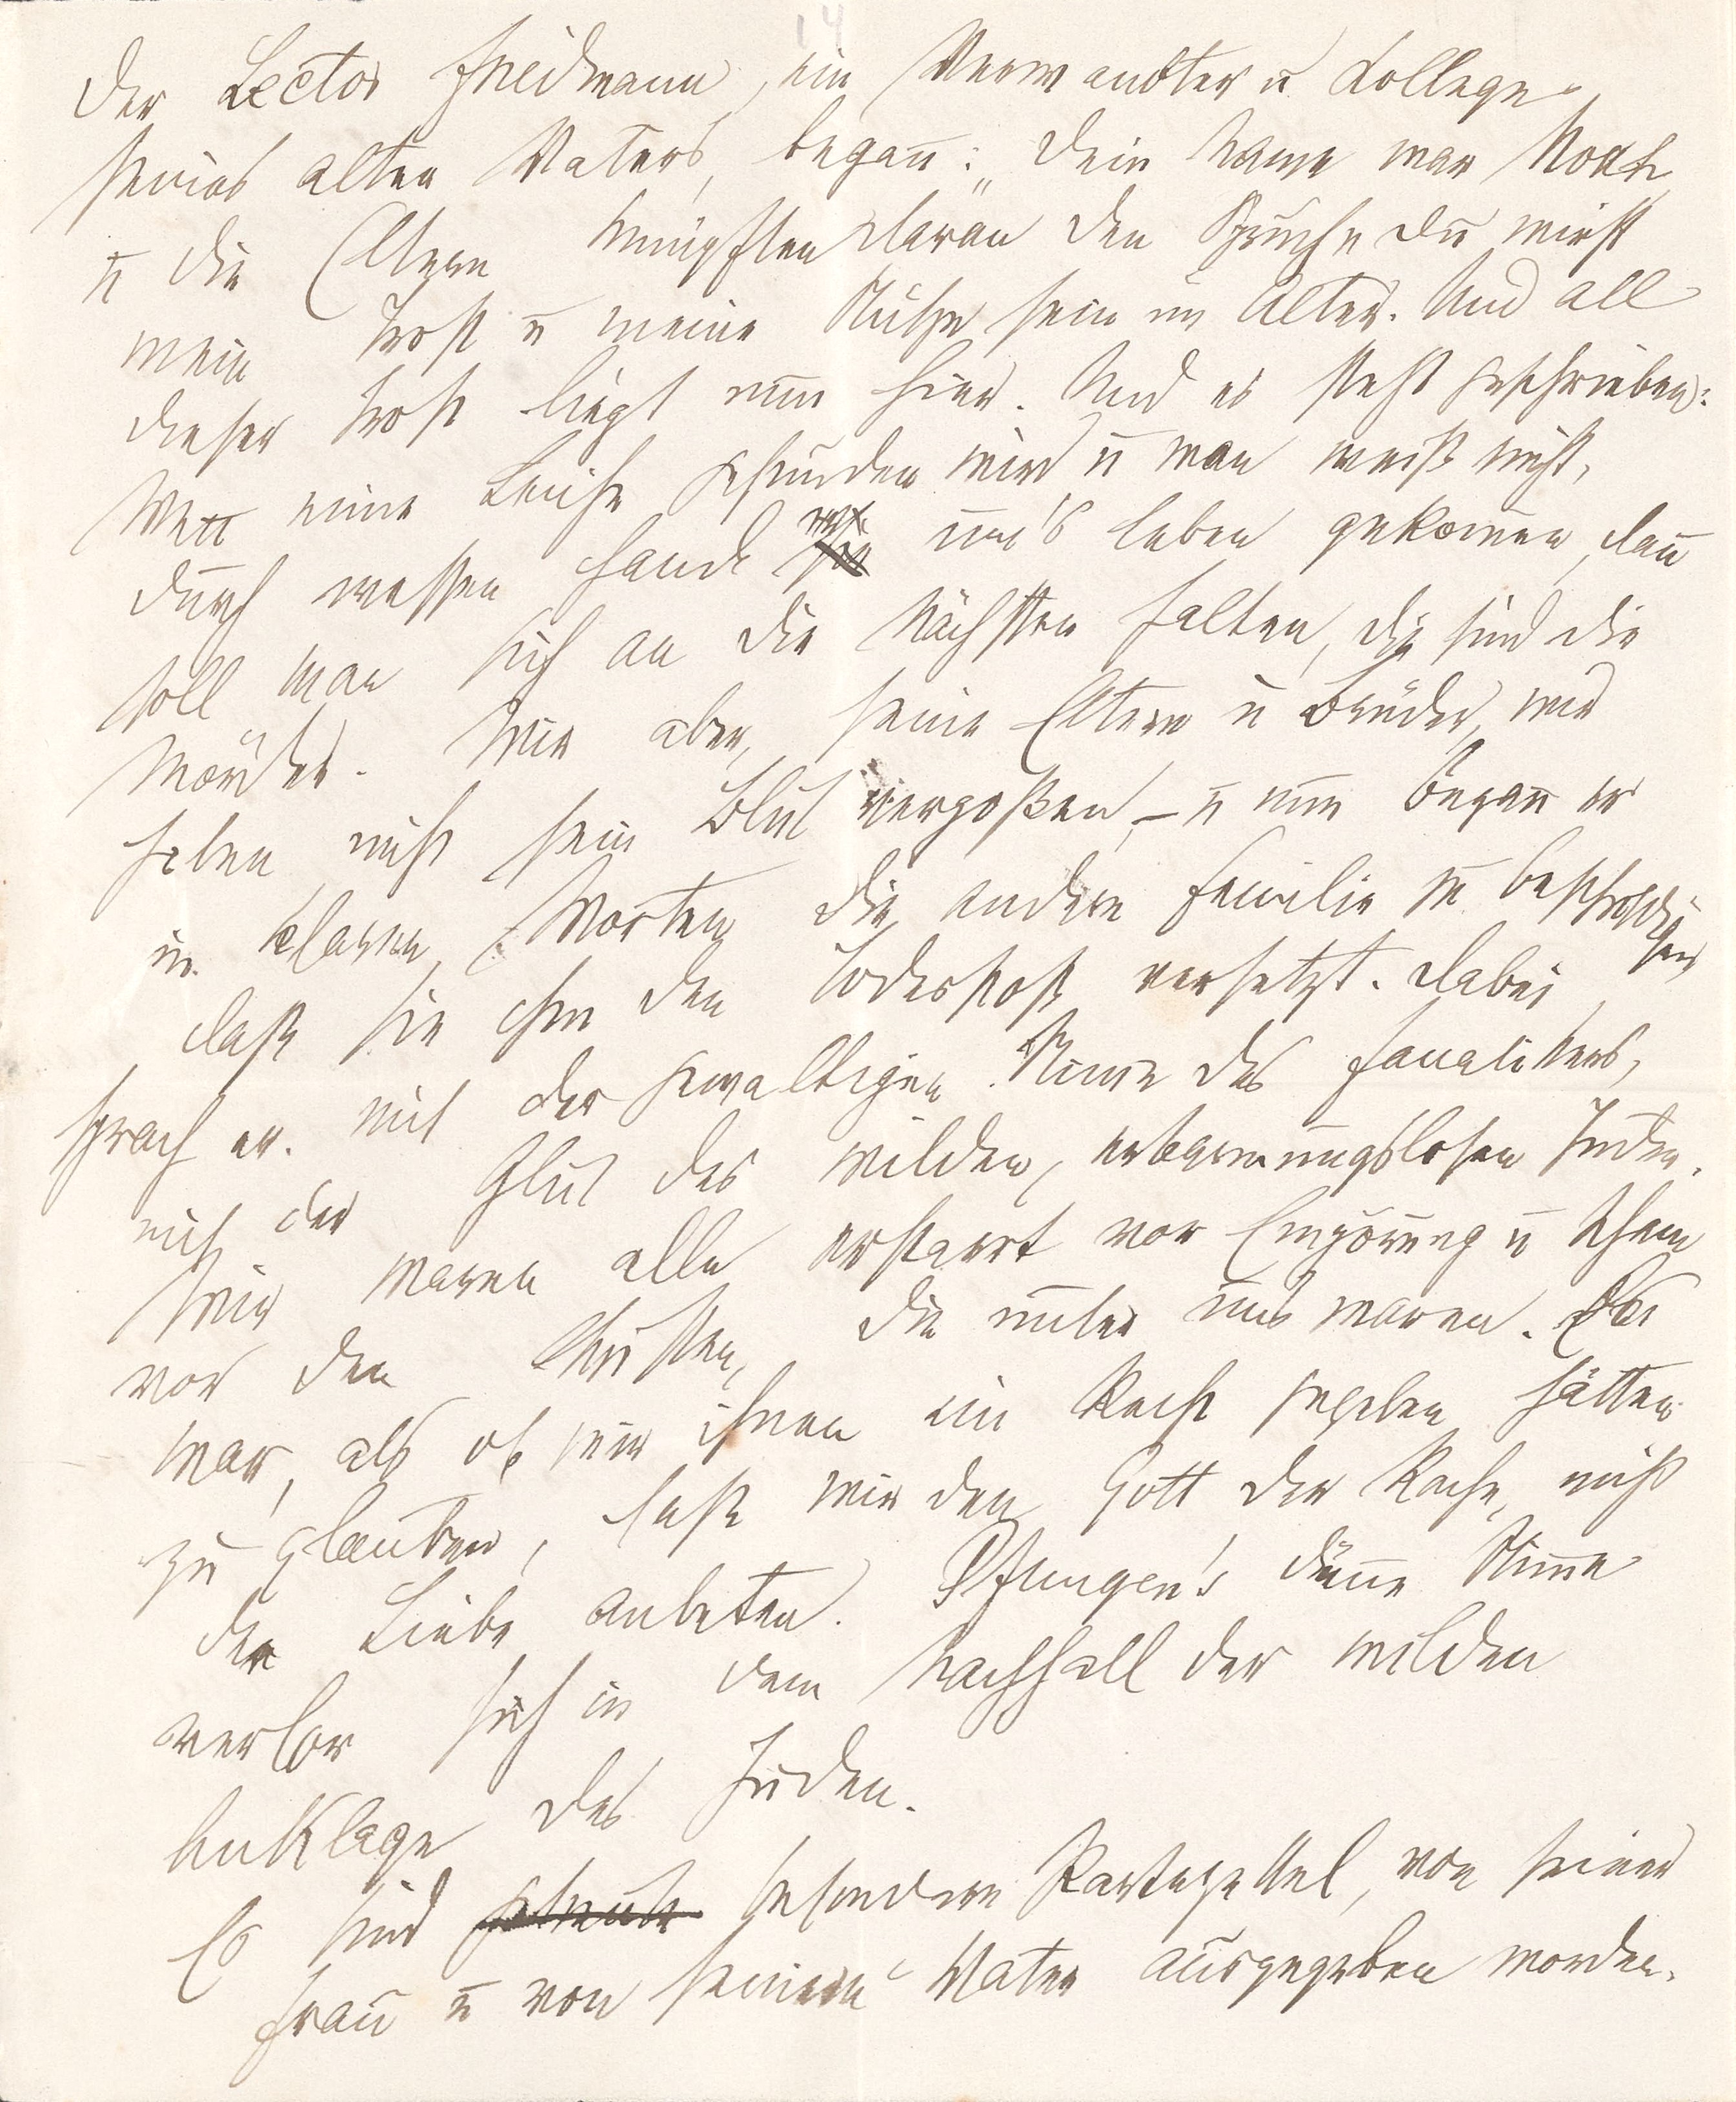 14
Der Lector Friedmann, ein Verwandter u College
seines alten Vaters, begann: „Dein Name war Noah
u die Eltern knüpften daran den Spruch, du wirst
mein Trost u meine Stütze sein im Alter. Und all
dieser Trost liegt nun hier. Und es steht geschrieben:
Wenn eine Leiche gefunden wird u man weiß nicht,
durch wessen Hand sie um's Leben gekommen, dann
soll man sich an die Nächsten halten, die sind die
Mörder. Wir aber, seine Eltern u Brüder, wir
haben nicht sein Blut vergoßen, – u nun begann er
in klaren Worten die andere Familie zu beschuldigen
daß sie ihm den Todesstoß versetzt. Dabei
sprach er mit der gewaltigen Stimme des Fanatikers,
mit der Glut des wilden, erbarmungslosen Juden.
Wir waren alle erstarrt vor Empörung u Scham
vor den Christen, die unter uns waren. Es
war, als ob wir ihnen ein Recht gegeben hätten
zu glauben, daß wir den Gott der Rache, nicht
der Liebe anbeten. Pfungen's dünne Stimme
verlor sich in dem Nachhall der wilden
Anklage des Juden.
Es sind besondere Partezettel, von seiner
Frau u von seinem Vater ausgegeben worden.